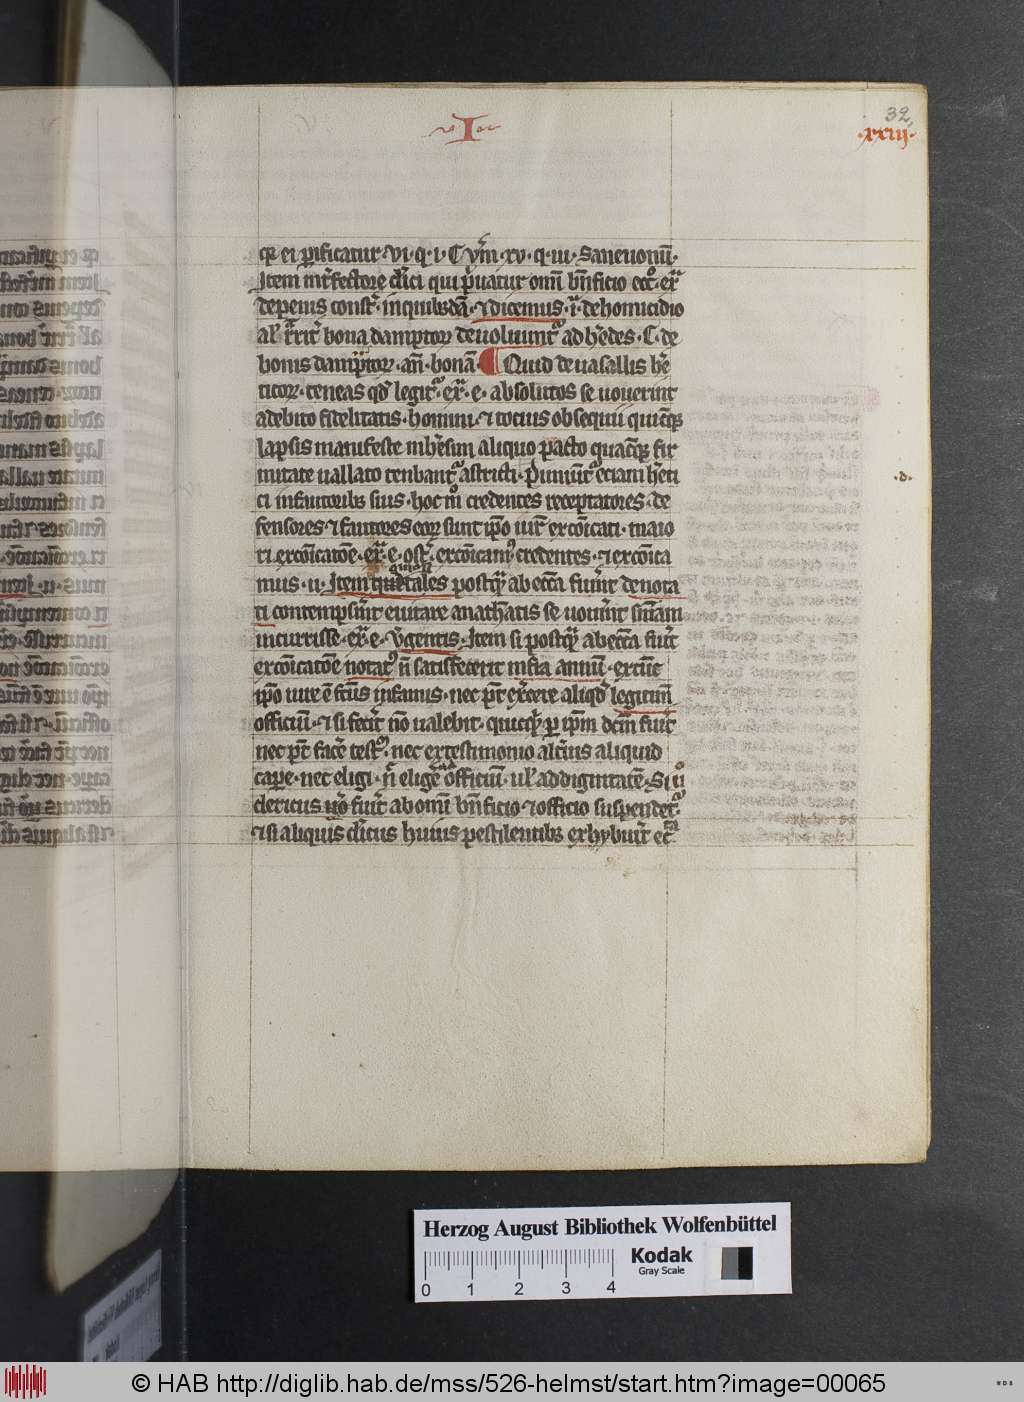 I
32
xxiij
qꝛ ei ꝑificatur vi · q · i · C ym̄ · xv · q · iii · Sancuonū ·
Item int̄fectore cl̄ici qui p̄uatur omī bn̄ficio ecc̄ · ex̄
de penis const̄ · in quibusdā · ⁊ dicemus · i · de homicidio
al' bona damptoꝝ deuoluunt᷑ ad h̄edes · C · de
bonis damptoꝝ · an̄ · bonā · ¶ Quid de uasallis he
ticoꝝ · teneas qd̄ legit᷑ · ex̄ · e · absolutos se nouerint
a debito fidelitatis · homini · ⁊ tocius obsequii quicūqꝫ
lapsis manifeste in h̄esim aliquo pacto quacūqꝫ fir
mitate uallato tenbant᷑ astricti · Puniūt᷑ eciam h̄eti
ci in fautoribus suis · hoc m̄ credentes receptatores · de
fensores ⁊ fautores eoꝝ sunt ip̄o iure excōicati · maio
ri excōicatōe · ex̄ · e · excōicam᷒ credentes · ⁊ excōica
mus · ii · Item qui tales postqᷓ ab ecc̄a fuerīt denota
ti contempserīt euitare anath̄atis se nouerīt sn̄iam
incurrisse · ex̄ · e · v̄gentis · Item si postqᷓ ab ecc̄a fuit̄
excōicatōe notat᷒ n̄ satisfecerit infra annū · extūc
ip̄o iure ē fc̄us infamis · nec pōt ex̄cere aliqd̄ legitimū
officiū · ⁊ si fecit̄ nō ualebit · quicqᷓ ꝑ ip̄m dc̄m fuit̄
nec pōt fac̄e test᷒ · nec ex testimonio alci̅us aliquid
cape · nec eligi · n̄ eligē ad officiū · ul' ad dignitatē · Si u͛o
clericus u͛o fuit̄ ab omī bn̄ficio ⁊ officio suspendet᷑
⁊ si aliquis cl̄icus huius pestilentibus exhybuit̄ ecc̄a
· d ·
Herzog August Bibliothek Wolfenbüttel
Kodak
Gray Scale
0 1 2 3 4
© HAB http://diglib.hab.de/mss/526-helmst/start.htm?image=00065